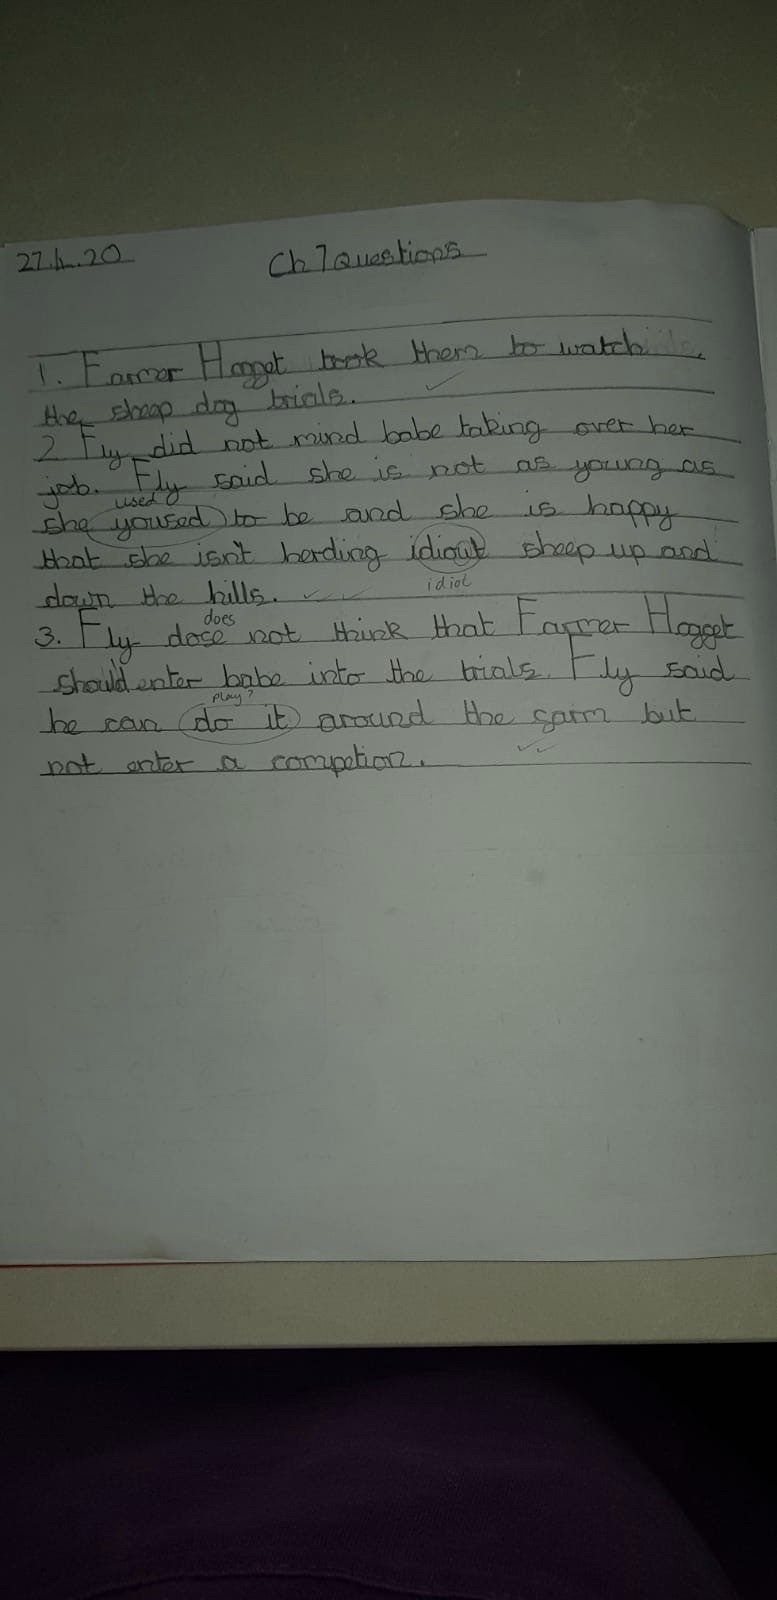 27.1.20 Ch 7 Questions
1. Farmer Hogget took them to watch
the sheep dog trials.
2 Fly did not mind babe taking over her
job. Fly said she is not as young as
used
she yoused to be and she is happy
that she isn't herding idiout sheep up and
idiot
down the hills.
does
3. Fly dose not think that Farmer Hogget
should enter babe into the trials. Fly said
play?
he can do it around the garm but
not enter a competion.